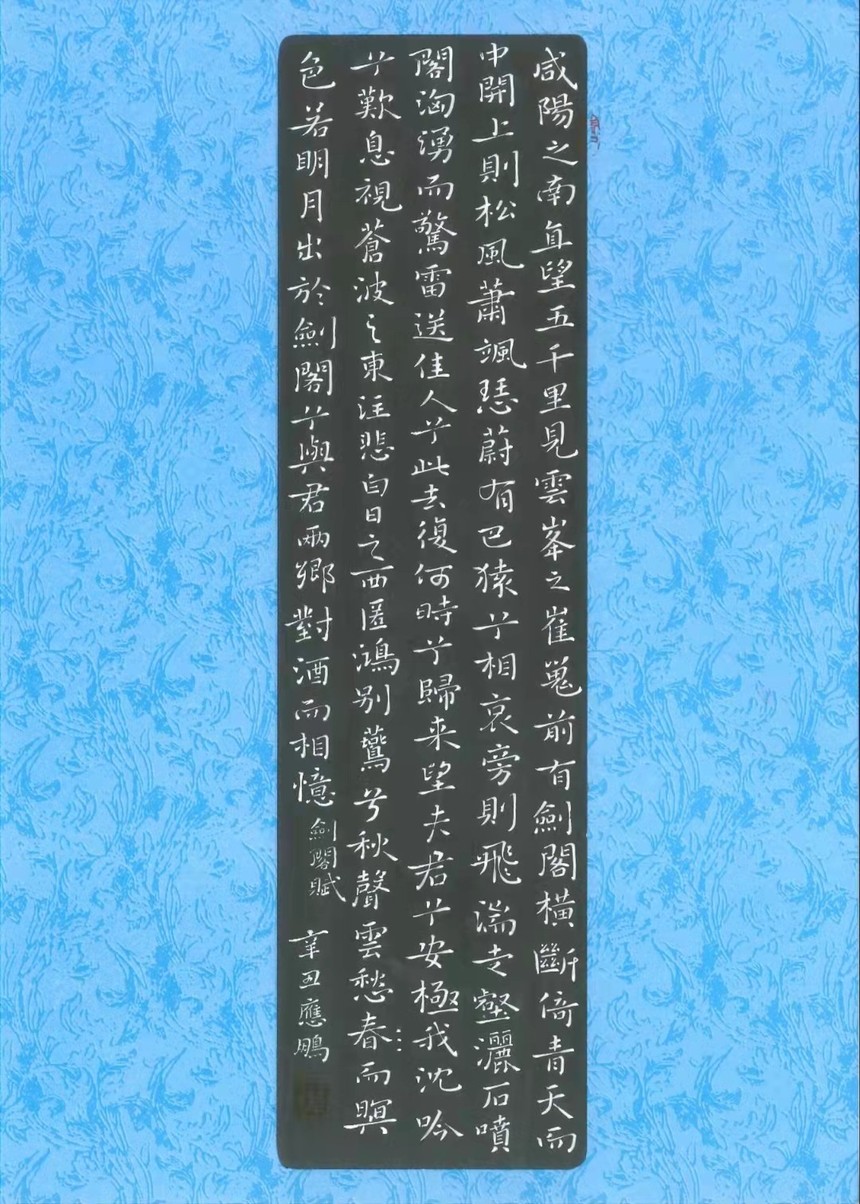 咸陽之南直望五千里見雲峯之崔嵬前有劍閣橫斷倚青天而
中開上則松風蕭颯瑟蔚有巴猿兮相哀旁則飛湍走壑灑石噴
閣洶湧而驚雷送佳人兮此去復何時兮歸来望夫君兮安極我沈吟
兮歎息視蒼波之東注悲白日之西匿鴻别鷰兮秋聲雲愁春而暝
色若明月出於劍閣兮與君兩鄉對酒而相憶
劍閣賦 辛丑應鵬